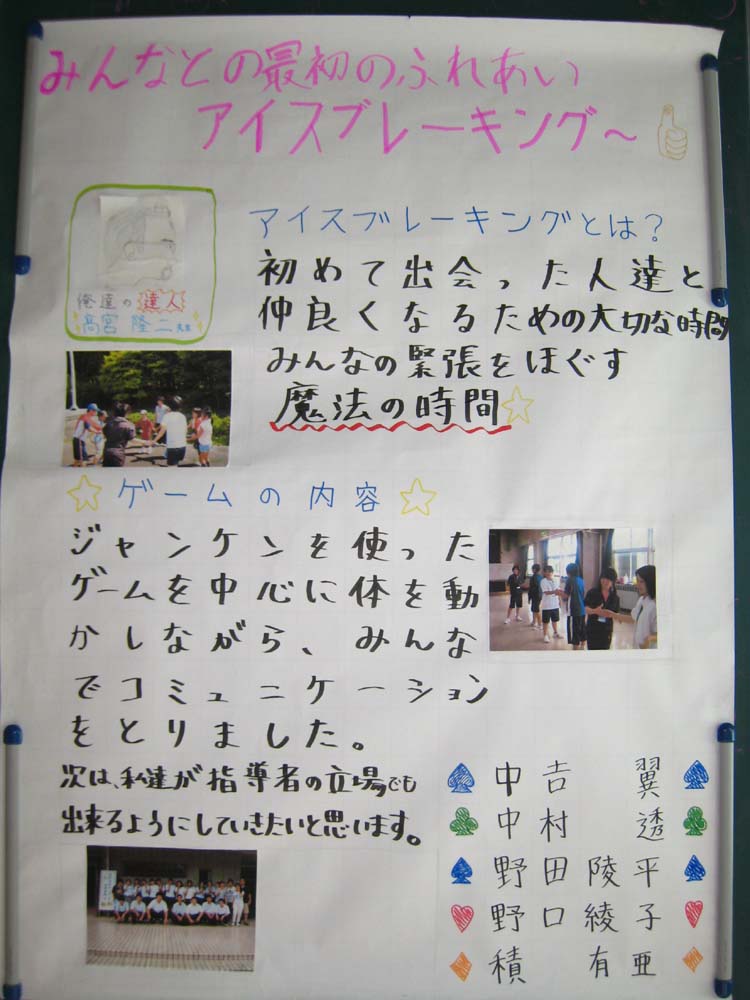 みんなとの最初のふれあい
アイスブレーキング～
俺達の達人
高宮隆二先生
アイスブレーキングとは？
初めて出会った人達と
仲良くなるための大切な時間
みんなの緊張をほぐす
魔法の時間
ゲームの内容
ジャンケンを使った
ゲームを中心に体を動
かしながら、みんな
でコミュニケーション
をとりました。
次は、私達が指導者の立場でも
出来るようにしていきたいと思います。
中吉 翼
中村 透
野田陵平
野口綾子
積 有亜